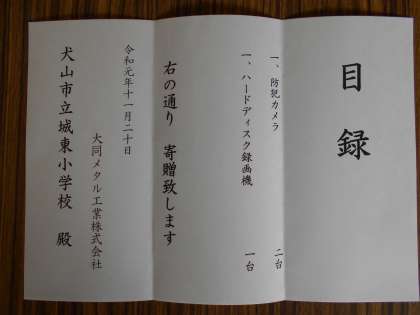 目録
一、防犯カメラ 二台
一、ハードディスク録画機 一台
右の通り 寄贈致します
令和元年十一月二十日
大同メタル工業株式会社
犬山市立城東小学校 殿